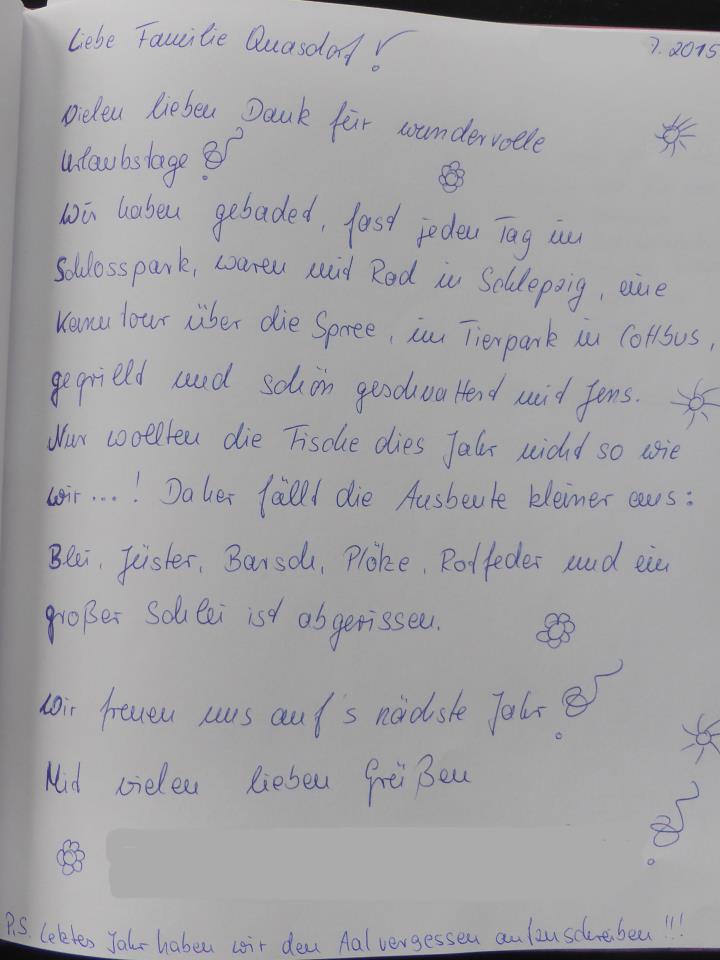 Liebe Familie Quasdorf!
7. 2015
Vielen lieben Dank für wundervolle
Urlaubstage!
Wir haben gebadet, fast jeden Tag im
Schlosspark, waren mit Rad in Schlepzig, eine
Kanutour über die Spree, im Tierpark in Cottbus,
gegrillt und schön geschnattert mit Jens.
Nur wollten die Fische dies Jahr nicht so wie
wir...! Daher fällt die Ausbeute kleiner aus:
Blei, Jüster, Barsch, Plötze, Rotfeder und ein
großer Schlei ist abgerissen.
Wir freuen uns auf's nächste Jahr!
Mit vielen lieben Grüßen
P.S. letztes Jahr haben wir den Aal vergessen aufzuschreiben!!!